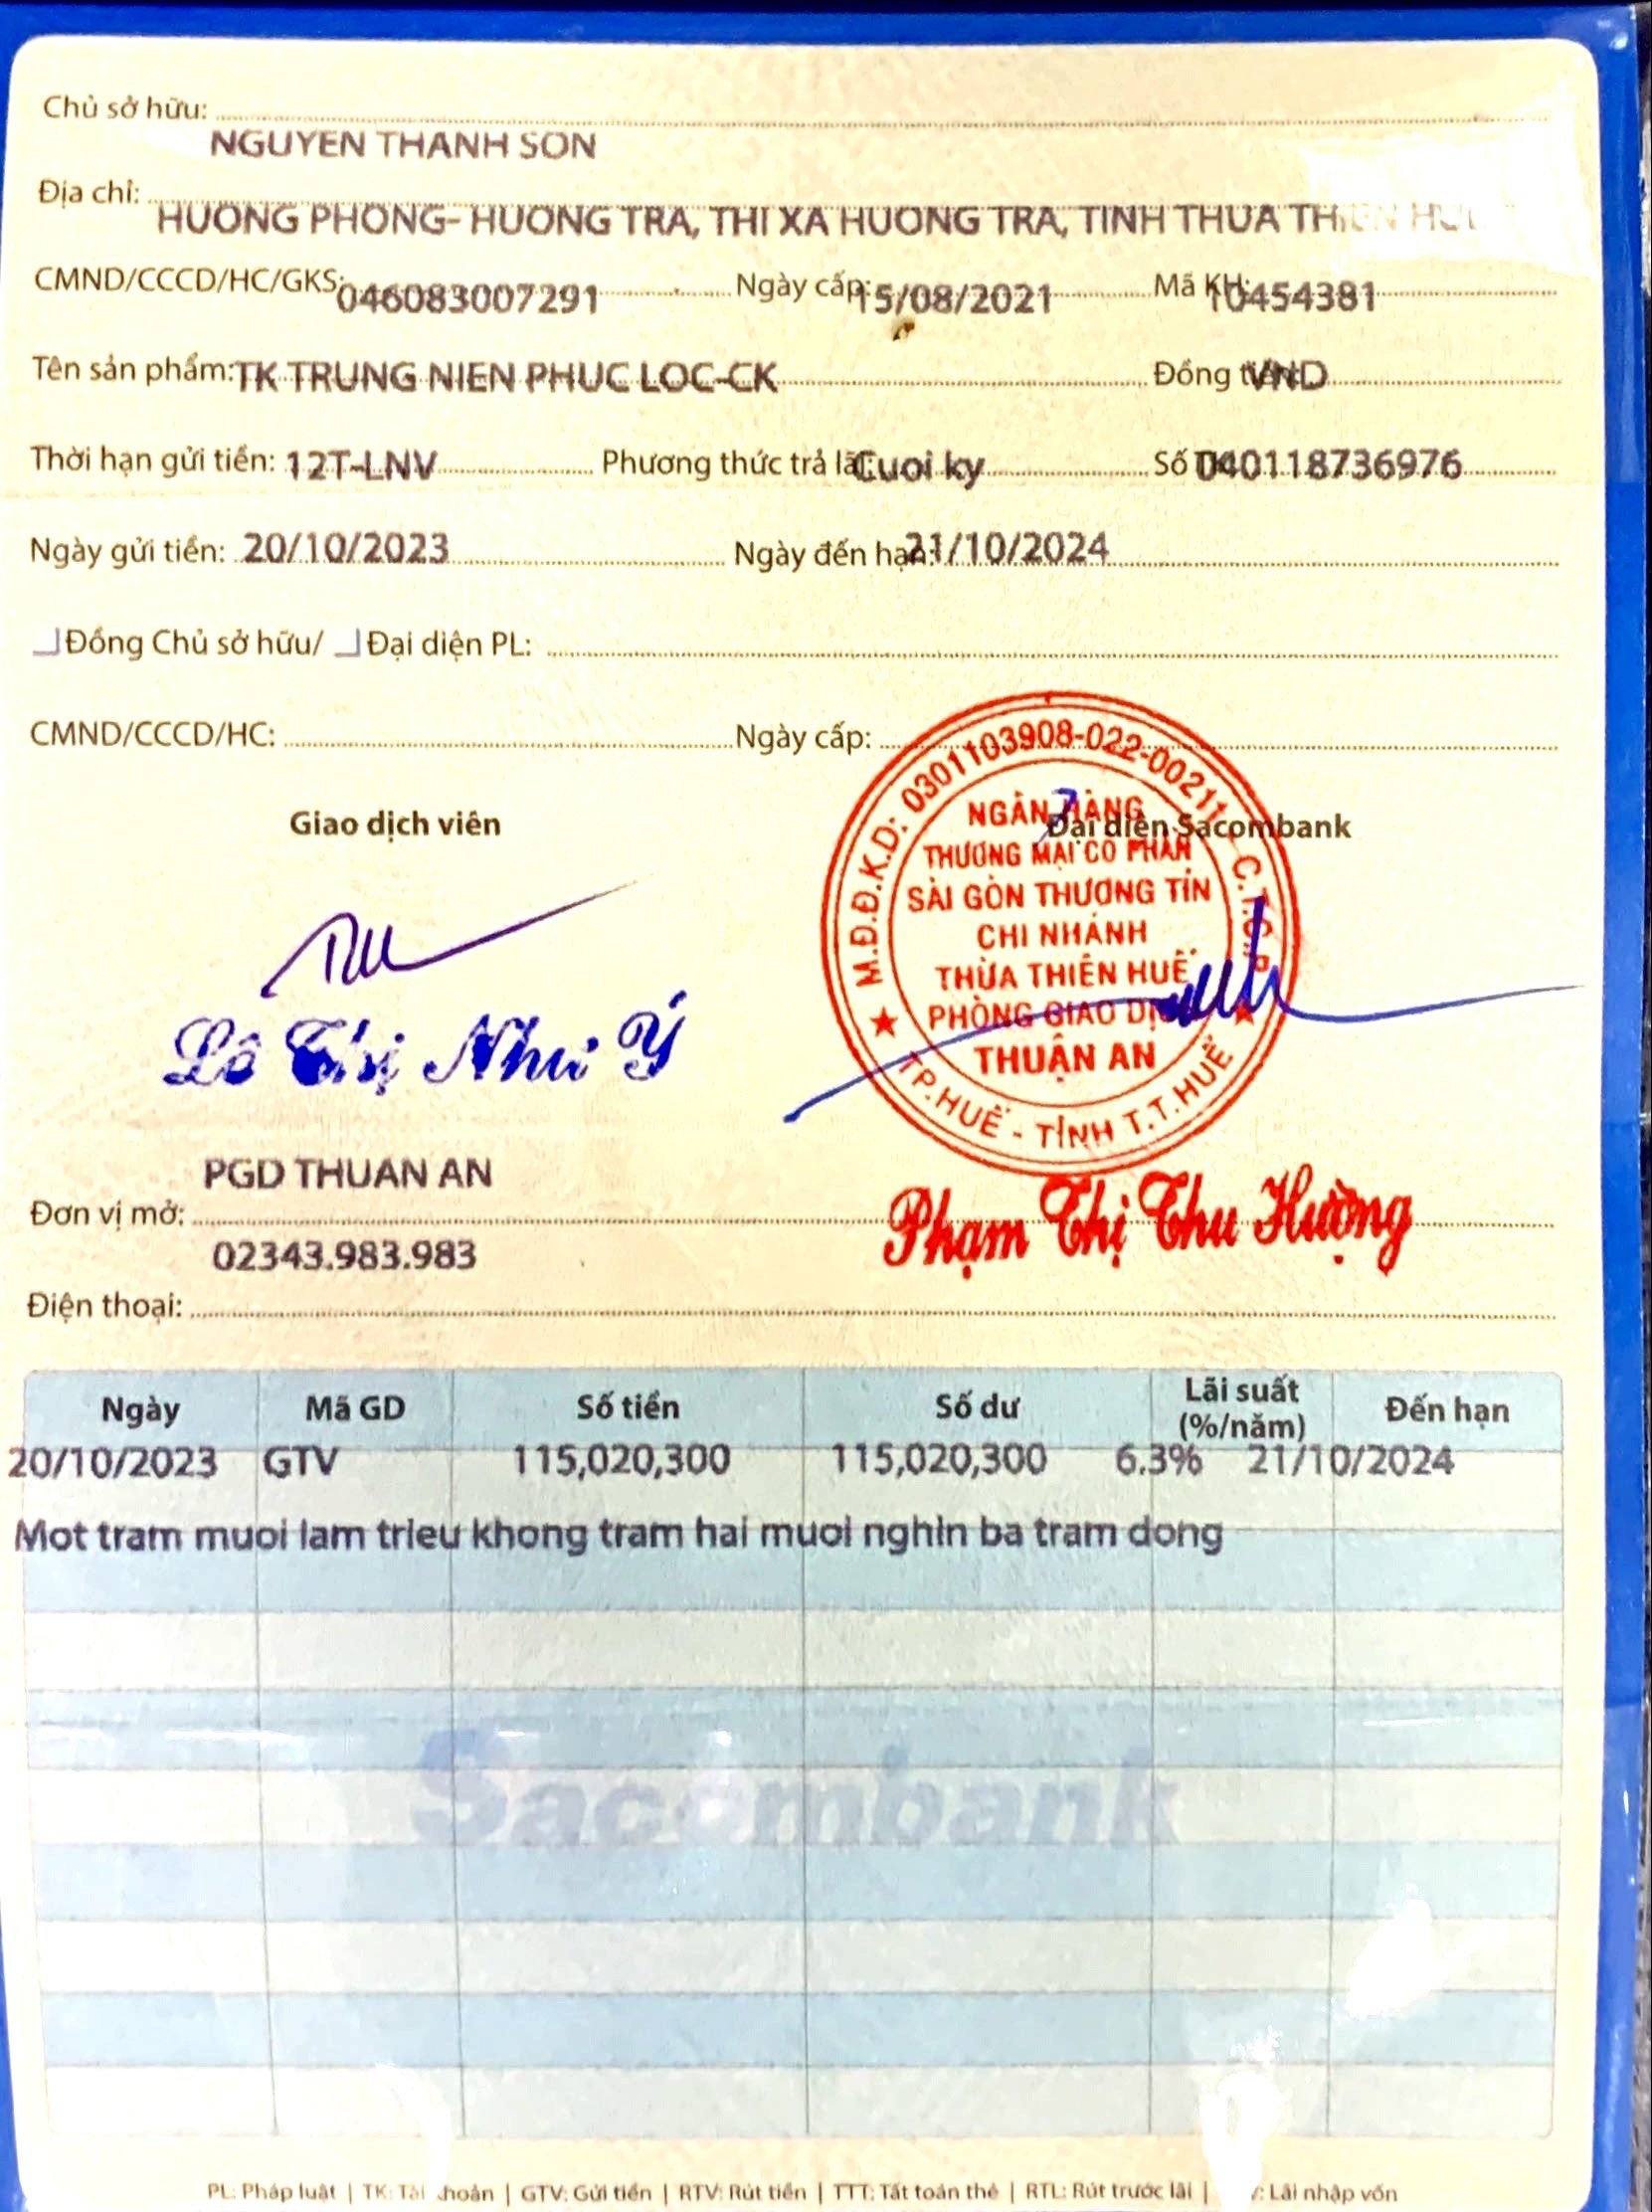 Chủ sở hữu:
NGUYEN THANH SON
Địa chỉ:
HUONG PHONG- HUONG TRA, THI XA HUONG TRA, TINH THUA THIEN HUE
CMND/CCCD/HC/GKS: 046083007291 Ngày cấp: 15/08/2021 Mã KH: 10454381
Tên sản phẩm: TK TRUNG NIEN PHUC LOC-CK Đồng tiền: VND
Thời hạn gửi tiền: 12T-LNV Phương thức trả lãi: Cuoi ky Số TK: 040118736976
Ngày gửi tiền: 20/10/2023 Ngày đến hạn: 21/10/2024
Đồng Chủ sở hữu/ Đại diện PL:
CMND/CCCD/HC: Ngày cấp:
Giao dịch viên Đại diện Sacombank
M.Đ.Đ.K.D: 0301103908-022-00211 - C.T.C.P
NGÂN HÀNG
THƯƠNG MẠI CỔ PHẦN
SÀI GÒN THƯƠNG TÍN
CHI NHÁNH
THỪA THIÊN HUẾ
PHÒNG GIAO DỊCH
THUẬN AN
TP.HUẾ - TỈNH T.T.HUẾ
Lê Thị Như Ý
Phạm Thị Thu Hường
PGD THUAN AN
Đơn vị mở:
02343.983.983
Điện thoại:
Ngày Mã GD Số tiền Số dư Lãi suất (%/năm) Đến hạn
20/10/2023 GTV 115,020,300 115,020,300 6.3% 21/10/2024
Mot tram muoi lam trieu khong tram hai muoi nghin ba tram dong
Sacombank
PL: Pháp luật | TK: Tài khoản | GTV: Gửi tiền | RTV: Rút tiền | TTT: Tất toán thẻ | RTL: Rút trước lãi | : Lãi nhập vốn